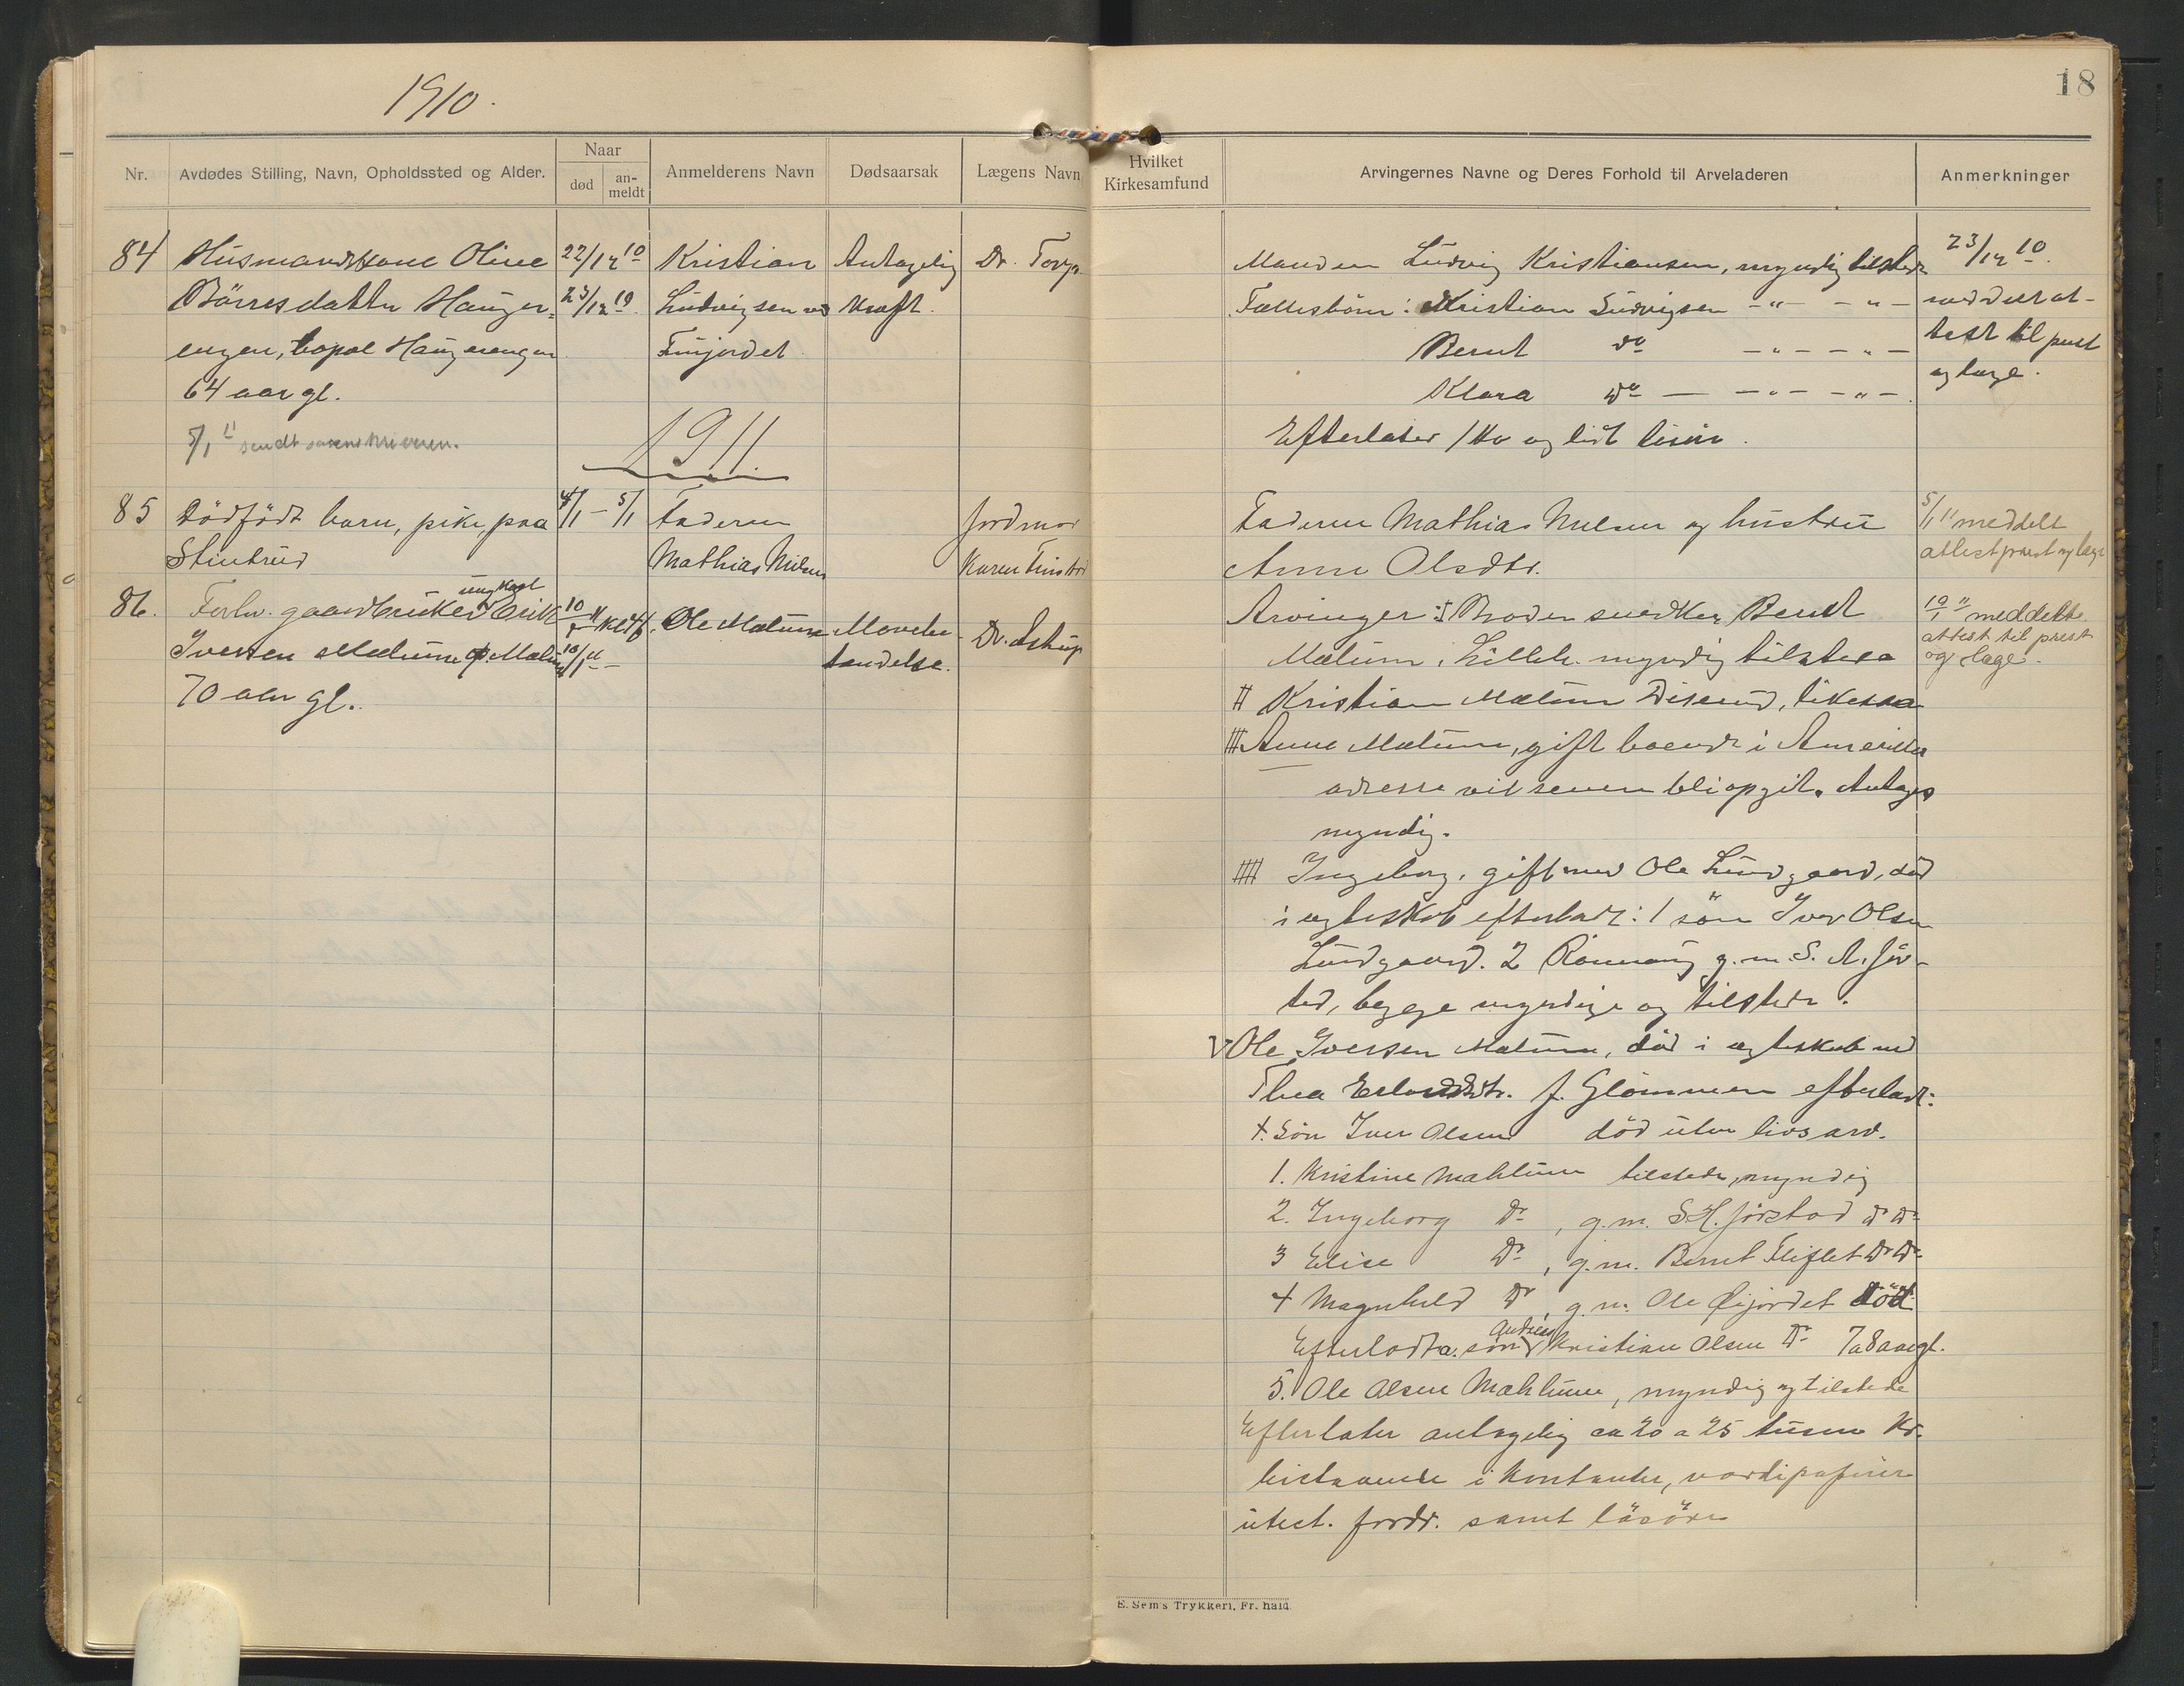 1910.
18
Nr.
Avdødes Stilling, Navn, Opholdssted og Alder.
Naar
død
an-
meldt
Anmelderens Navn
Dødsaarsak
Lægens Navn
Hvilket
Kirkesamfund
Arvingernes Navne og Deres Forhold til Arveladeren
Anmerkninger
84
Husmandskone Oline
Börresdatter Hauger-
engen, bopæl Haugerengen
64 aar gl.
5/1 11 sendt sorenskriveren.
22/12 10
23/12 10
Kristian
Ludvigsen
Furjordet
Antagelig
kræft.
Dr. Torp
Manden Ludvig Kristiansen, myndig tilstede
Fællesbörn: Kristian Ludvigsen -"- -"-
Bernt do -"- -"-
Klara do - -"- -"-
Efterlater 1 ko og lidt lösöre.
23/12 10.
meddelt at-
test til prest
og læge.
1911.
85
Dödfödt barn, pike, paa
Stintrud
4/1 - 5/1
Faderen
Mathias Nilsen
Jordmor
Karen
Faderen Mathias Nilsen og hustru
Anne Olsdtr.
5/1 11 meddelt
attest prest og læge
86.
ungkarl
Forhv. gaardbruker Erik
Iversen Mælum p. Mælum
70 aar gl.
10/1 11 Kl
10/1 11
Ole Mælum
Mavebe-
tændelse.
Dr. Astrup
Arvinger: I Broder snedker Bendt
Mælum, Lilleh. myndig tilstede
II Kristian Mælum Diserud, likesaa
III Anne Mælum, gift boende i Amerika
adresse vil senere bli opgit. Antages
myndig.
IIII Ingeborg, gift med Ole Lundgaard, död
i egteskab efterladt: 1 sön Iver Olsen
Lundgaard. 2 Rönnaug g. m. S. A. Jör-
stad, begge myndige og tilstede.
V Ole Iversen Mælum, död i egteskab med
Thea Erlandsdtr. f. Glömmen efterladt:
+. Sön Iver Olsen död uten livsarv.
1. Kristine Mæhlum tilstede, myndig
2. Ingeborg Do, g.m. S.H. Jörstad Do Do
3 Elise Do, g.m. Bernt Fliflet Do Do
4 Magnhild Do, g.m. Ole Øijordet död
Efterladt a: sön Andreas Kristian Olsen Do 7 a 8 aar gl.
5. Ole Olsen Mæhlum, myndig og tilstede
Efterlater antagelig ca 20 a 25 tusen Kr.
bestaaende i kontanter, værdipapirer
utest. fordr. samt lösöre
10/1 11 meddelt
attest til prest
og læge.
E. Sem's Trykkeri, Fr.hald.